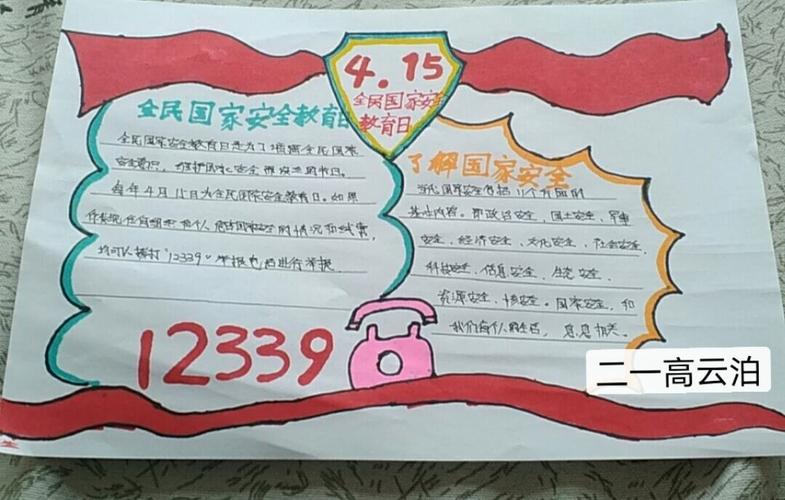 4.15
全民国家安全
教育日
全民国家安全教育日
全民国家安全教育日是为了增强全民国家
安全意识，维护国家安全而设立的节日。
每年4月15日为全民国家安全教育日。如果
任何组织和个人 危害国家安全的情况和线索，
均可以拨打“12339”举报电话进行举报
12339
了解国家安全
当代国家安全包括11个方面的
基本内容。即政治安全、国土安全、军事
安全、经济安全、文化安全、社会安全、
科技安全、信息安全、生态安全、
资源安全、核安全。国家安全，和
我们每个人的生活，息息相关。
二一高云泊